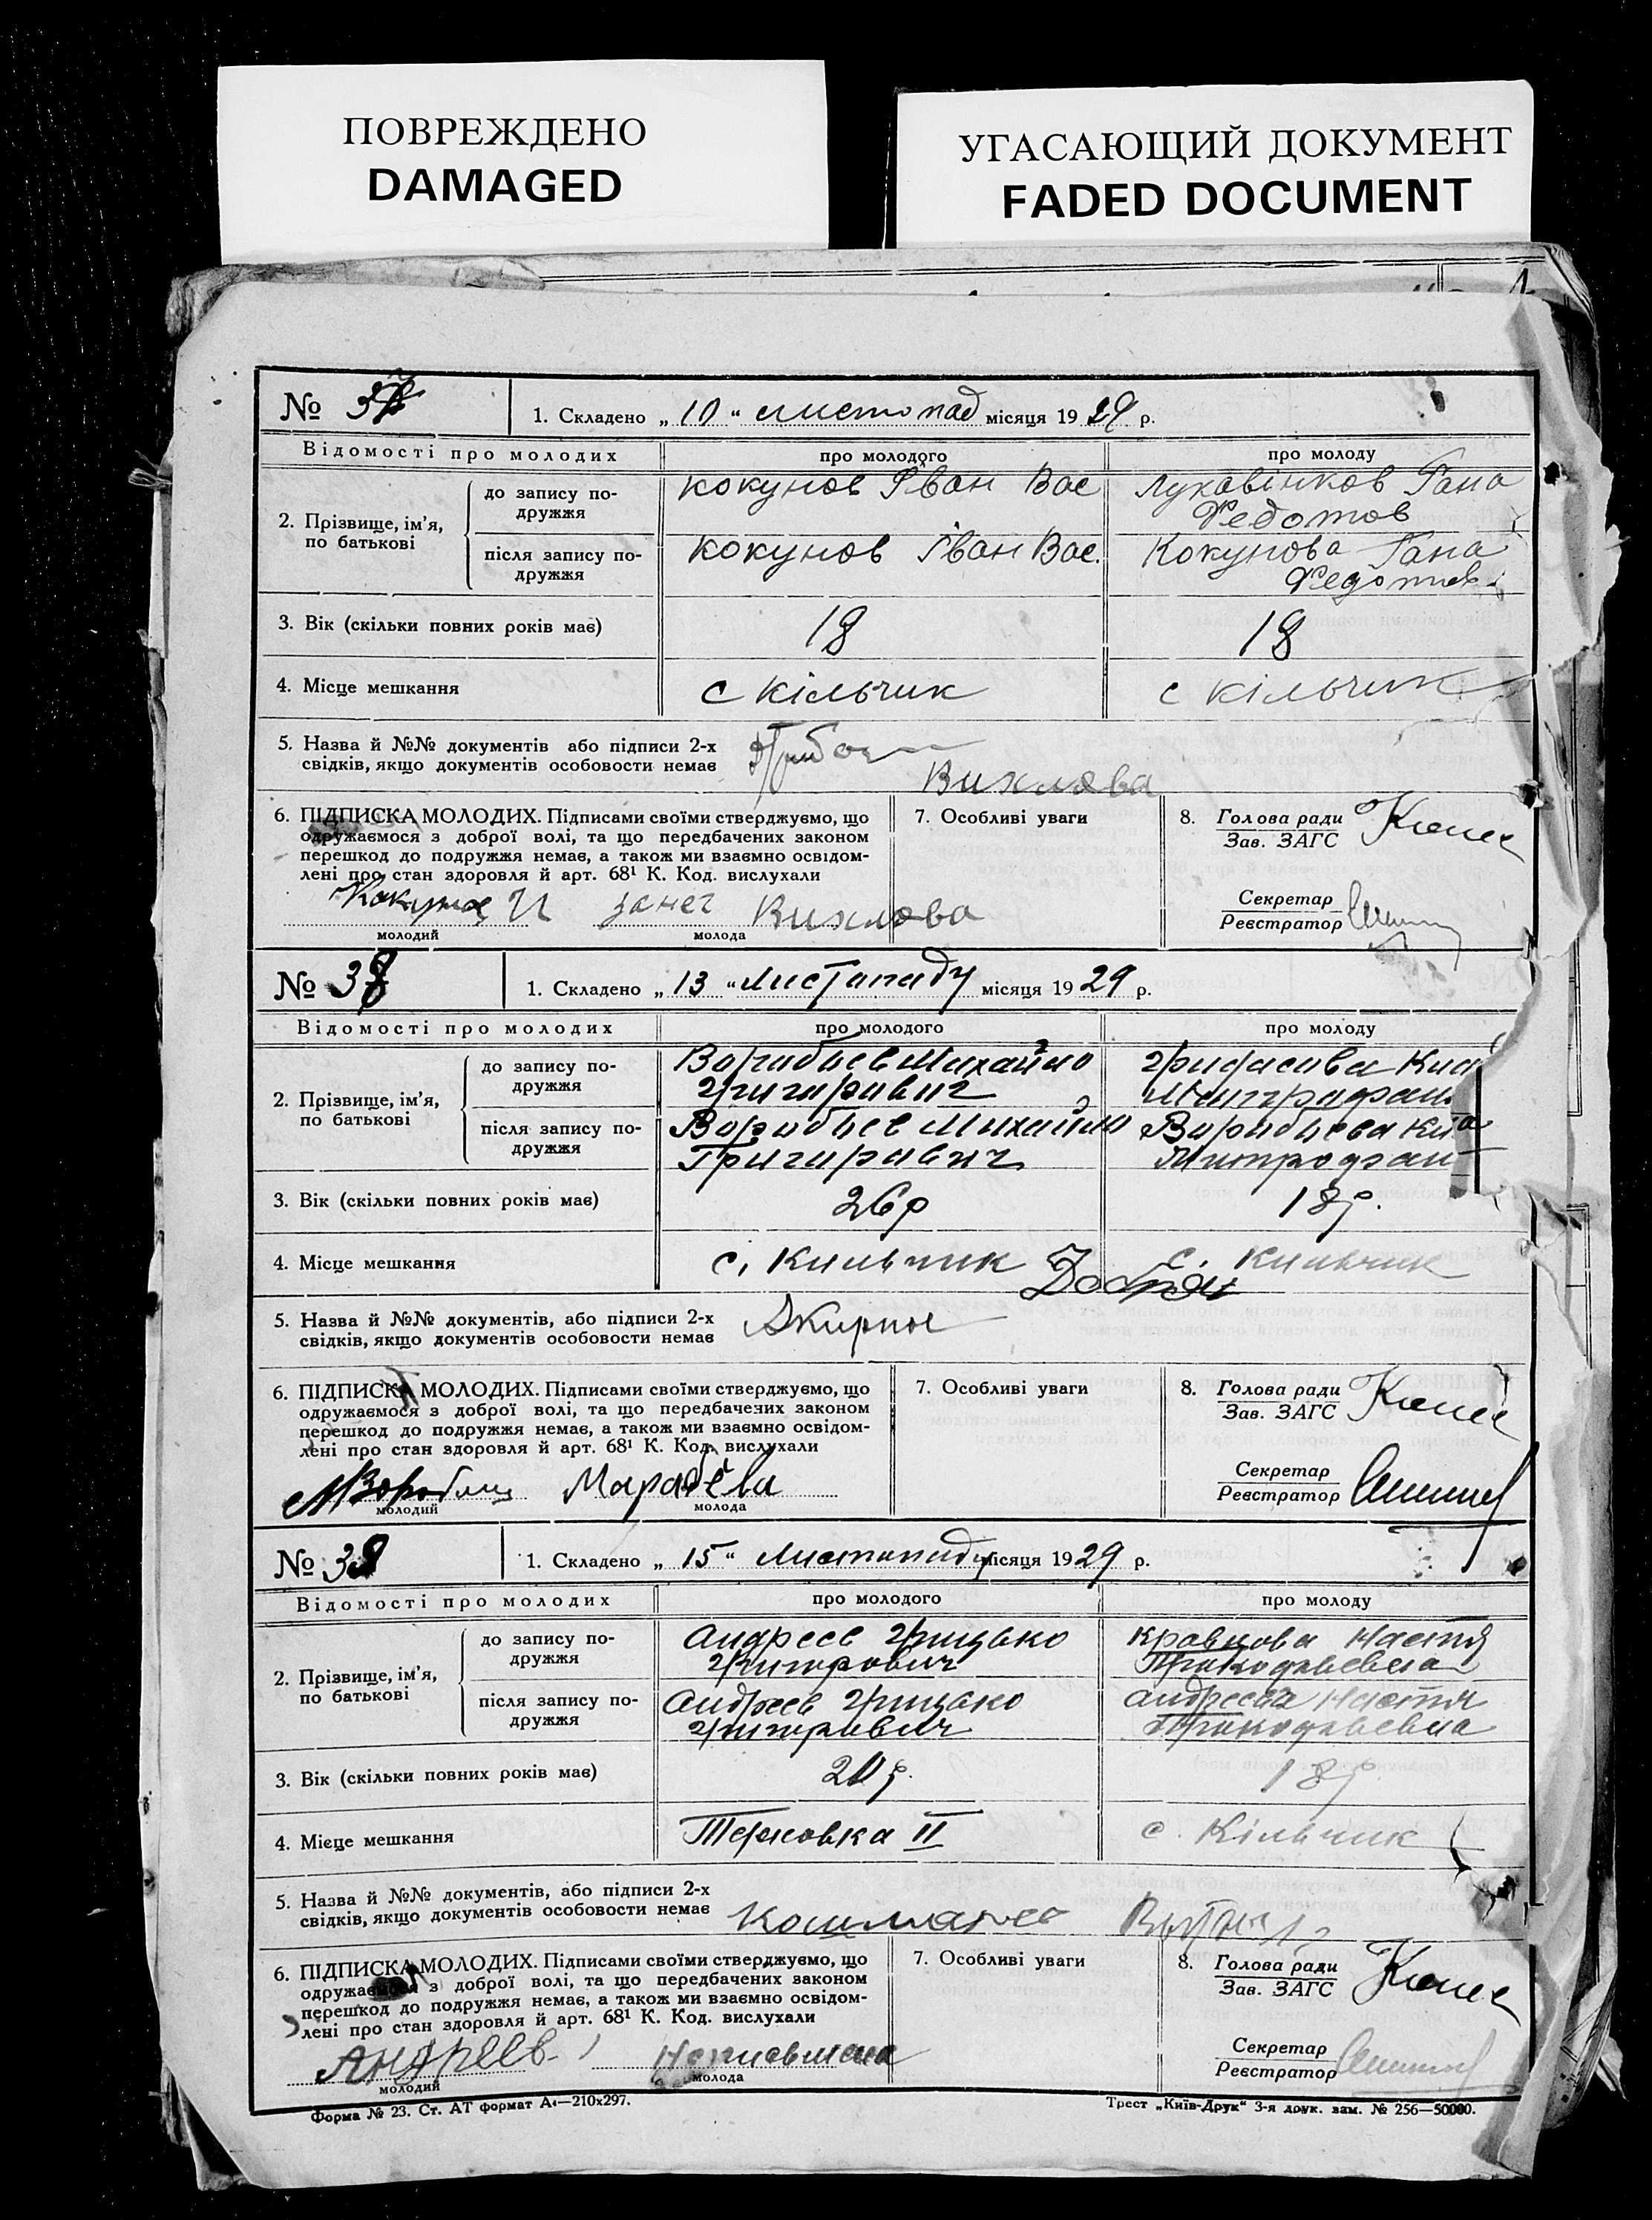 ПОВРЕЖДЕНО
DAMAGED
УГАСАЮЩИЙ ДОКУМЕНТ
FADED DOCUMENT
№ 37 1. Складено „ 10 “ листопад місяця 19 29 р.
Відомості про молодих про молодого про молоду
2. Прізвище, ім’я, по батькові
до запису по-
дружжя
кокунов Іван Вас
Гана
Федотов
після запису по-
дружжя
кокунов Іван Вас.
Кокунова Гана
3. Вік (скільки повних років має) 18 18
4. Місце мешкання с кільчик с кільчик
5. Назва й №№ документів або підписи 2-х
свідків, якщо документів особовости немає
Вихлова
6. ПІДПИСКА МОЛОДИХ. Підписами своїми стверджуємо, що
одружаємося з доброї волі, та що передбачених законом
перешкод до подружжя немає, а також ми взаємно освідом-
лені про стан здоровля й арт. 68¹ К. Код. вислухали
Вихлова
молодий молода
7. Особливі уваги
8. Голова ради
Зав. ЗАГС
Секретар
Реєстратор
№ 38 1. Складено „ 13 “ Листопаду місяця 19 29 р.
Відомості про молодих про молодого про молоду
2. Прізвище, ім’я, по батькові
до запису по-
дружжя
Воробьев Михайло
Григорович
після запису по-
дружжя
Воробьев Михайло
Григорович
Воробьева
3. Вік (скільки повних років має) 26р 18р.
4. Місце мешкання с. Кильчик с. Кильчик
5. Назва й №№ документів, або підписи 2-х
свідків, якщо документів особовости немає
6. ПІДПИСКА МОЛОДИХ. Підписами своїми стверджуємо, що
одружаємося з доброї волі, та що передбачених законом
перешкод до подружжя немає, а також ми взаємно освідом-
лені про стан здоровля й арт. 68¹ К. Код. вислухали
молодий молода
7. Особливі уваги
8. Голова ради
Зав. ЗАГС
Секретар
Реєстратор
№ 1. Складено „ 15 “ Листопаду місяця 19 29 р.
Відомості про молодих про молодого про молоду
2. Прізвище, ім’я, по батькові
до запису по-
дружжя
Андреев Грицько
Кравцова Настя
після запису по-
дружжя
Андреев Грицько
Андреева Настя
3. Вік (скільки повних років має) 18р.
4. Місце мешкання Терновка II с. Кільчик
5. Назва й №№ документів, або підписи 2-х
свідків, якщо документів особовости немає
6. ПІДПИСКА МОЛОДИХ. Підписами своїми стверджуємо, що
одружаємося з доброї волі, та що передбачених законом
перешкод до подружжя немає, а також ми взаємно освідом-
лені про стан здоровля й арт. 68¹ К. Код. вислухали
Андреев
молодий молода
7. Особливі уваги
8. Голова ради
Зав. ЗАГС
Секретар
Реєстратор
Форма № 23. Ст. АТ формат А₄—210x297. Трест „Київ-Друк“ 3-я друк. зам. № 256—50000.